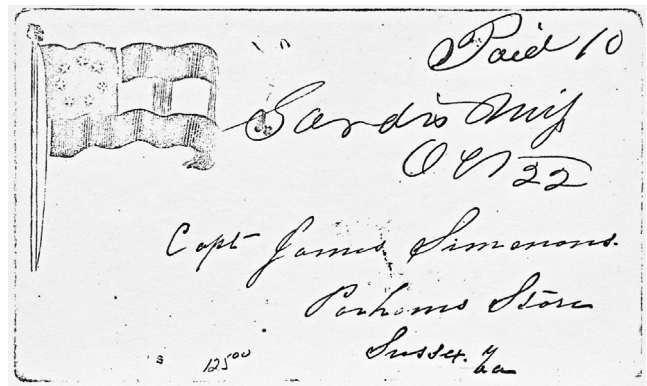 Paid 10
Sardis Miss
Oct 22
Capt James Simmons.
Parhams Store
Sussex. Va
12500